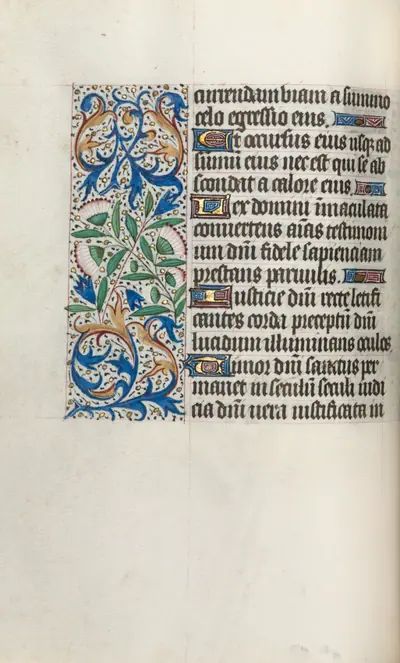 currendam viam a summo
celo egressio eius.
Et occursus eius usq; ad
sumū eius nec est qui se ab
scondat a calore eius.
Lex domini īmaculata
convertens aīas testimoni
um dn̄i fidele sapienciam
prestans parvulis.
Iusticie dn̄i recte letifi
cantes corda preceptū dn̄i
lucidum illuminans oculos.
Timor dn̄i sanctus per
manet in seculū seculi iudi
cia dn̄i vera iustificata in